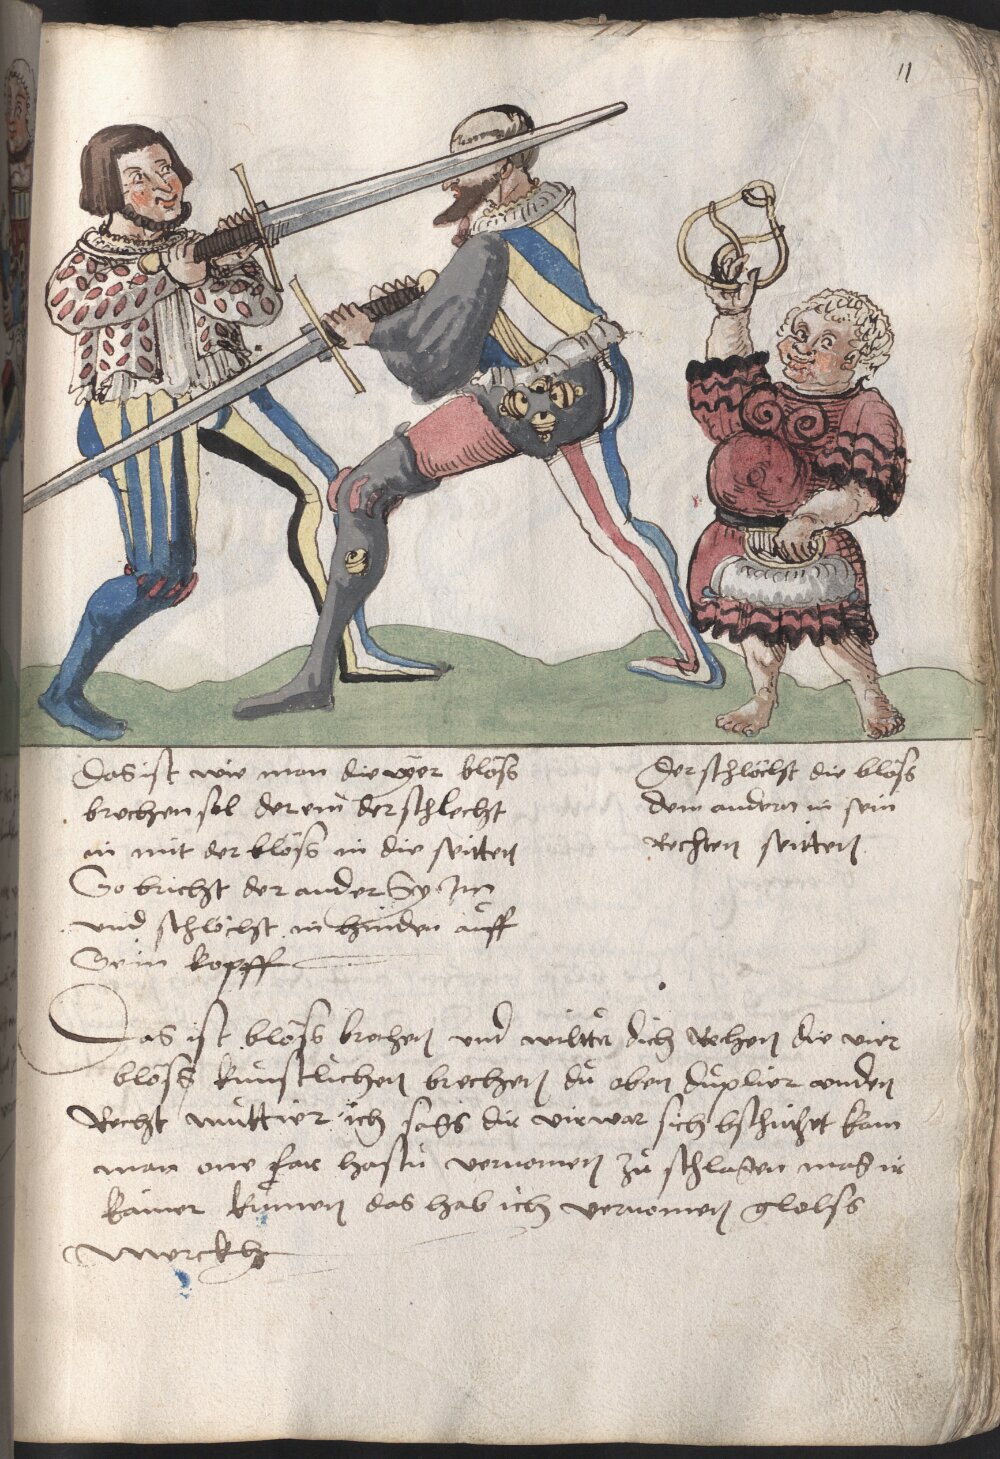 11
Das ist wie man die vyer blöss
brechen sol der ein der schlecht
in mit der blöss in die seitten
So bricht der ander Sy Im
und schlöchst in hinden auff
Sein kopff
Der schlöchst die blöss
dem andern in sein
Rechten seitten
Das ist blöss brechen und wiltu dich Rechen die vier
blöss kunstlichen brechen du oben duplier unden
Recht muttier ich sags dir vir war sich bschutzet kain
man one far hastu vernomen zu schlagen mag ir
kainer kumen das hab ich vernomen gloss
Merckh